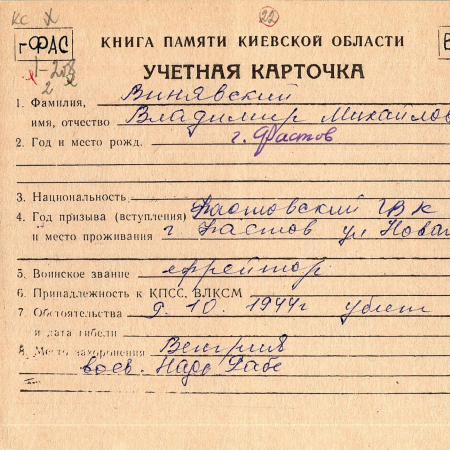 КС
22
г ФАС
КНИГА ПАМЯТИ КИЕВСКОЙ ОБЛАСТИ
УЧЕТНАЯ КАРТОЧКА
1. Фамилия, Винявский
имя, отчество Владимир Михайлов
2. Год и место рожд. г. Фастов
3. Национальность
4. Год призыва (вступления) Фастовский ГВК
и место проживания г Фастов ул Новая
5. Воинское звание ефрейтор
6. Принадлежность к КПСС, ВЛКСМ
7. Обстоятельства 9. 10. 1944г убит
и дата гибели
8. Место захоронения Венгрия
воев. Надь Рабе